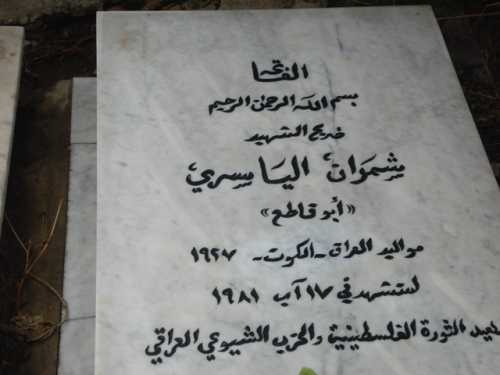 الفاتحة
بسم الله الرحمن الرحيم
ضريح الشهيد
شمران الياسري
«أبو قاطع»
مواليد العراق - الكوت - ١٩٢٧
استشهد في ١٧ آب ١٩٨١
الثورة الفلسطينية والحزب الشيوعي العراقي